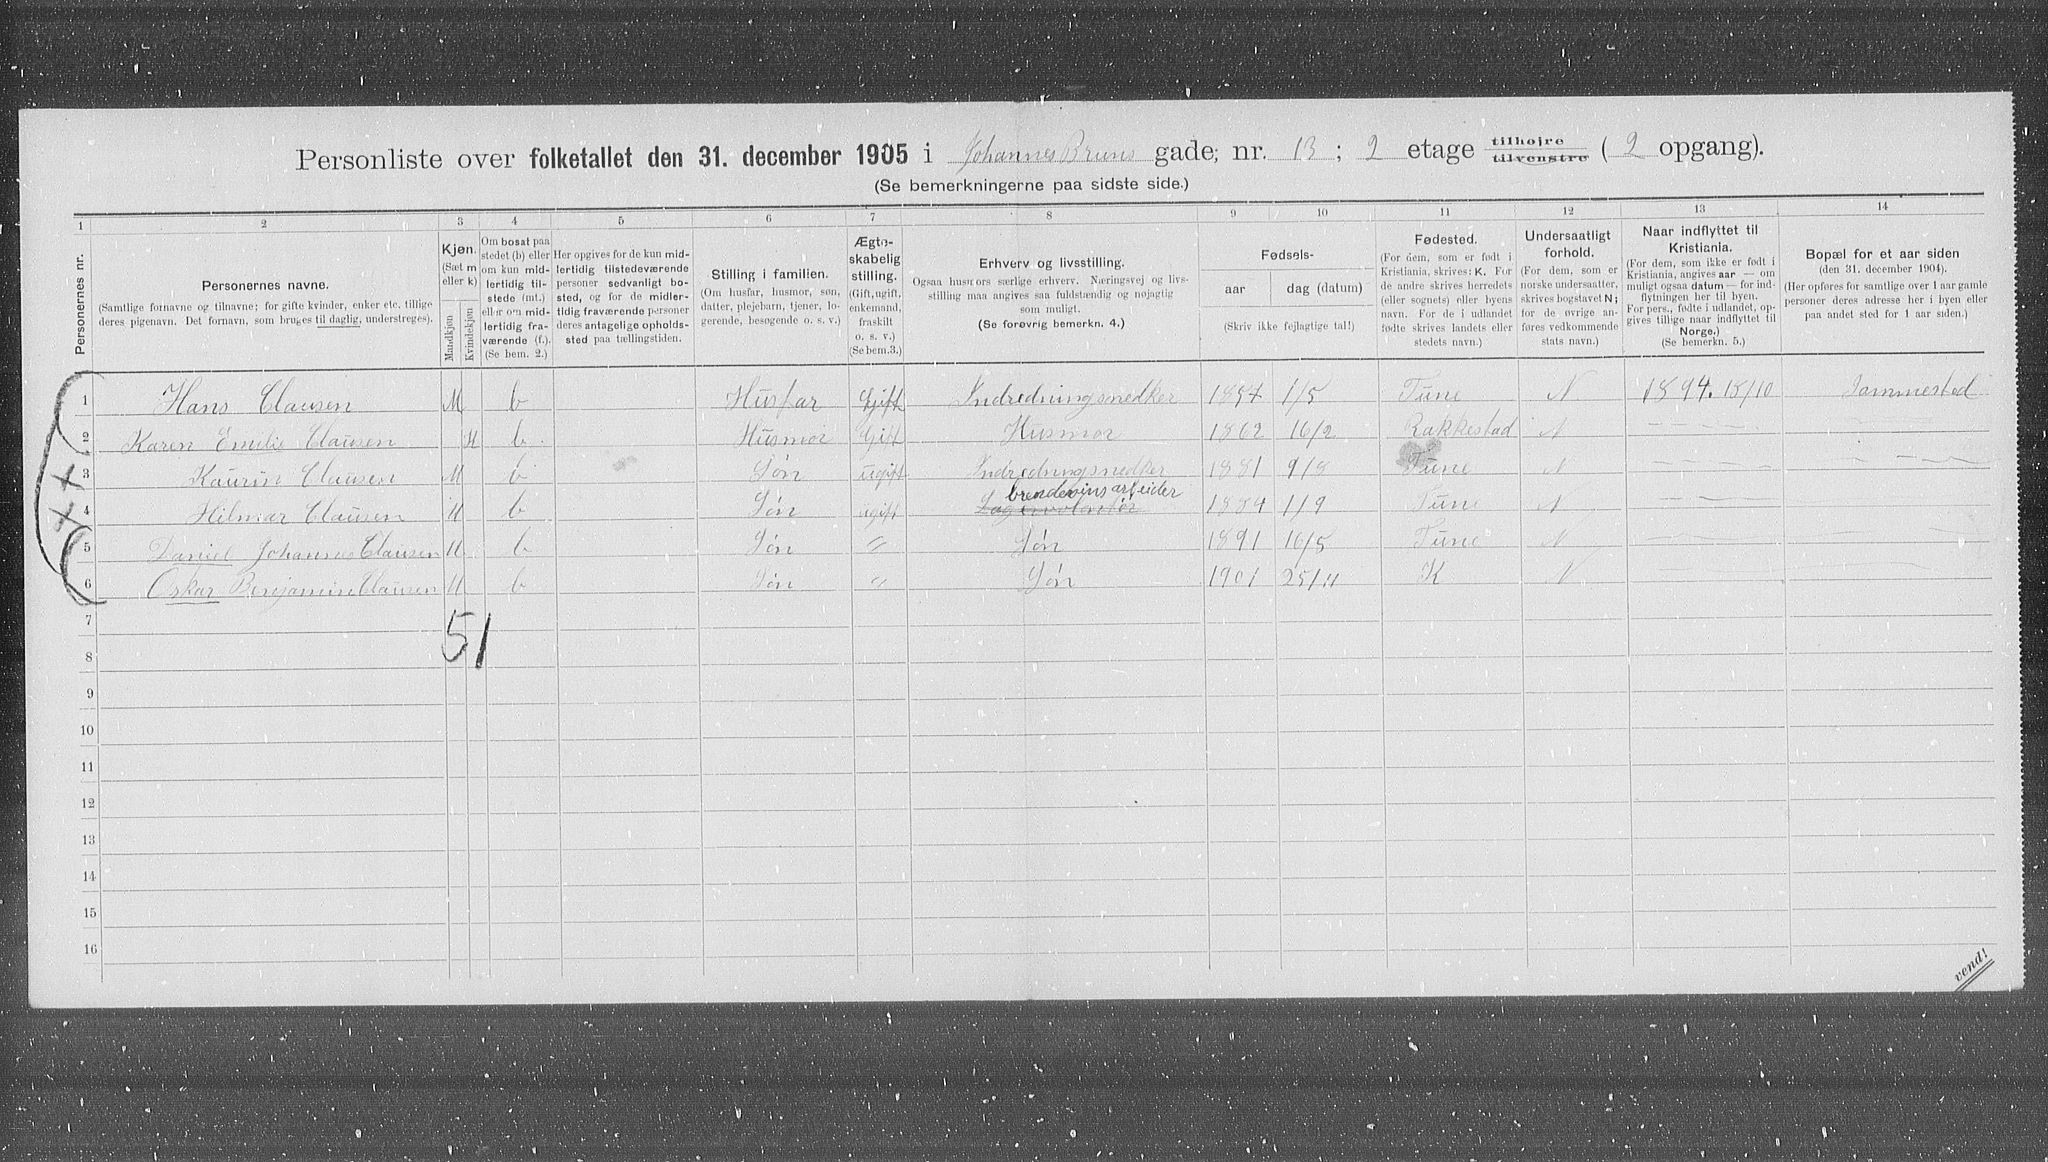 Personliste over folketallet den 31. december 1905 i Johannes Bruns gade; nr. 13; 2 etage tilhøjre tilvenstre (2 opgang).
(Se bemerkningerne paa sidste side.)
1 2 3 4 5 6 7 8 9 10 11 12 13 14
Personernes nr.
Personernes navne.
(Samtlige fornavne og tilnavne; for gifte kvinder, enker etc. tillige
deres pigenavn. Det fornavn, som bruges til daglig, understreges).
Kjøn.
(Sæt m
eller k)
Mandkjøn
Kvindekjøn
Om bosat paa
stedet (b) eller
om kun mid-
lertidig til-
stede (mt.)
eller om mid-
lertidig fra-
værende (f.).
(Se bem. 2.)
Her opgives for de kun mid-
lertidig tilstedeværende
personer sedvanligt bo-
sted, og for de midler-
tidig fraværende personer
deres antagelige opholds-
sted paa tællingstiden.
Stilling i familien.
(Om husfar, husmor, søn,
datter, plejebarn, tjener, lo-
gerende, besøgende o. s. v.)
Ægte-
skabelig
stilling.
(Gift, ugift,
enkemand,
fraskilt
o. s. v.)
(Se bem. 3.)
Erhverv og livsstilling.
Ogsaa husmors særlige erhverv. Næringsvej og livs-
stilling maa angives saa fuldstændig og nøjagtig
som muligt.
(Se forøvrig bemerkn. 4.)
Fødsels-
aar dag (datum)
(Skriv ikke fejlagtige tal!)
Fødested.
(For dem, som er født i
Kristiania, skrives: K. For
de andre skrives herredets
(eller sognets) eller byens
navn. For de i udlandet
fødte skrives landets eller
stedets navn.)
Undersaatligt
forhold.
(For dem, som er
norske undersaatter,
skrives bogstavet N;
for de øvrige an-
føres vedkommende
stats navn.)
Naar indflyttet til
Kristiania.
(For dem, som ikke er født i
Kristiania, angives aar — om
muligt ogsaa datum — for ind-
flytningen her til byen.
For pers., fødte i udlandet, op-
gives tillige naar indflyttet til
Norge.)
(Se bemerkn. 5.)
Bopæl for et aar siden
(den 31. december 1904).
(Her opføres for samtlige over 1 aar gamle
personer deres adresse her i byen eller
paa andet sted for 1 aar siden.)
1 Hans Clausen M b Husfar Gift Indredningsnedker 1857 1/5 Tune N 1894. 15/10 Sammested
2 Karen Emelie Clausen K b. Husmor Gift Husmor 1862 16/2 Rakkestad N
3 Kaurin Clausen M b Søn ugift Indredningsnedker 1881 9/8 Tune N
4 Hilmar Clausen M b Søn ugift brendevinsarbeider 1884 1/9 Tune N
5 Daniel Johannes Clausen M b Søn " Søn 1891 16/5 Tune N
6 Oskar Benjamin Clausen M b Søn " Søn 1901 25/11 K N
7
51
8
9
10
11
12
13
14
15
16
vend!